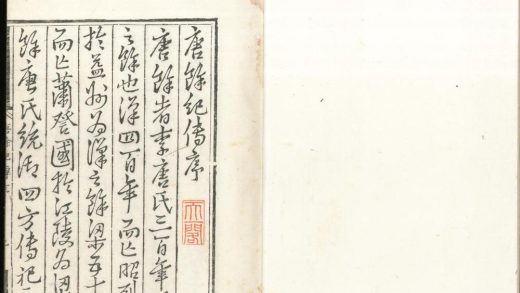 唐餘紀傳序
唐餘者李唐氏三百年
之餘也漢四百年而亡昭烈
於益州為漢之餘梁五十
而亡蕭國於江陵為梁
餘唐氏統御四方傳祀